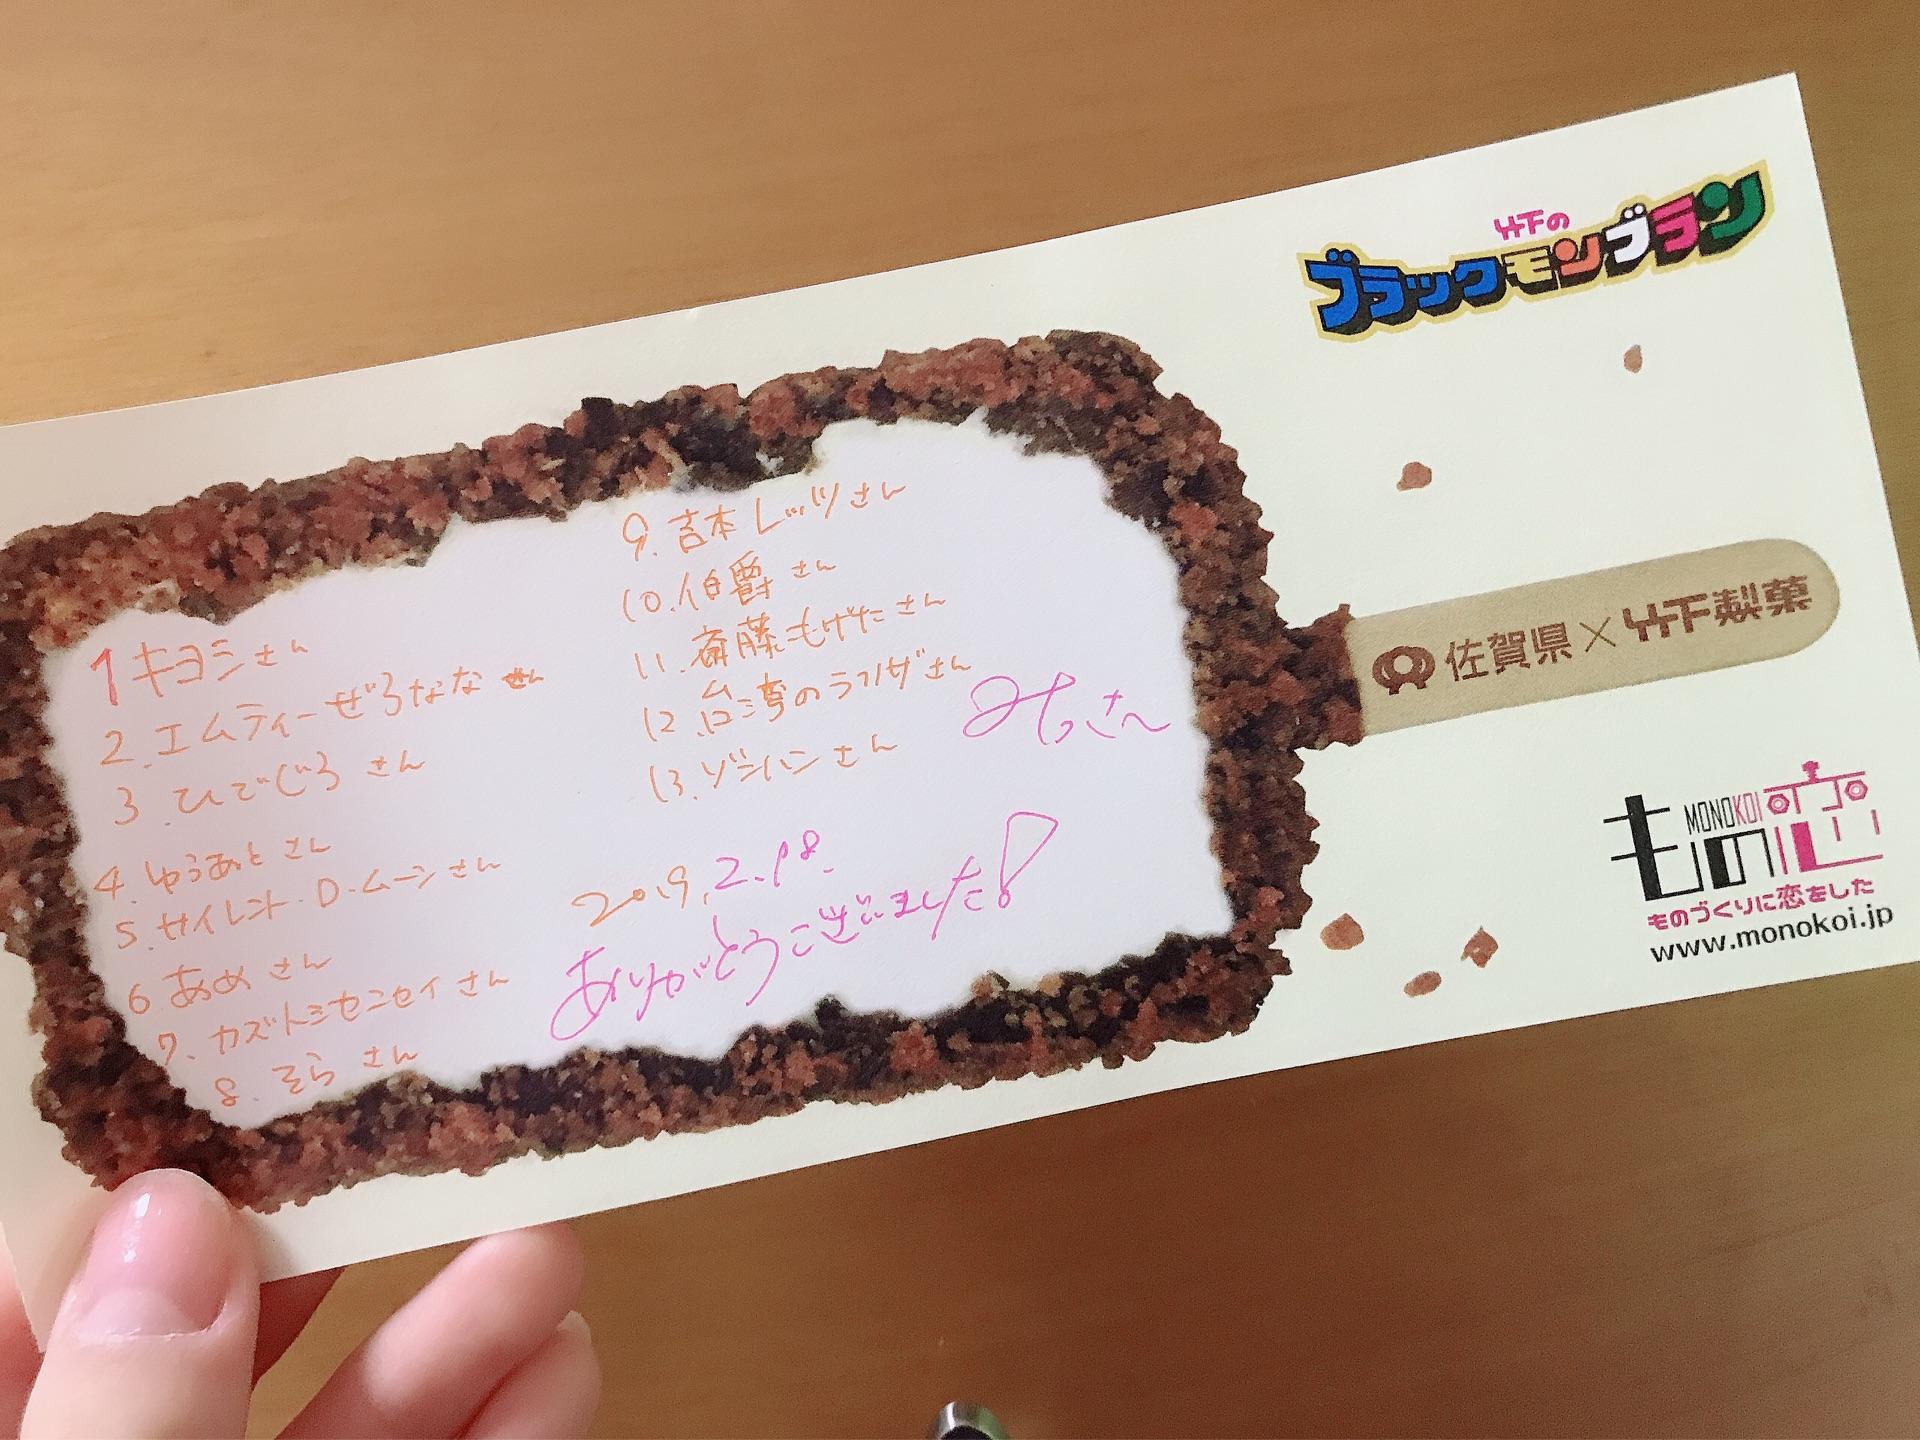 竹下の
ブラックモンブラン
1 キヨシさん
2. エムティーぜろななさん
3. ひでじろさん
4. ゆうあとさん
5. サイレント・D・ムーンさん
6. あめさん
7. カズトシセンセイさん
8. そらさん
9. 吉本レッツさん
10. 伯爵さん
11. 斎藤もげたさん
12. 台湾のラフノザさん
13. ゾンハンさん
みっさん
2019, 2.18.
ありがとうございました!
佐賀県×竹下製菓
もの恋
MONOKOI
ものづくりに恋をした
www.monokoi.jp